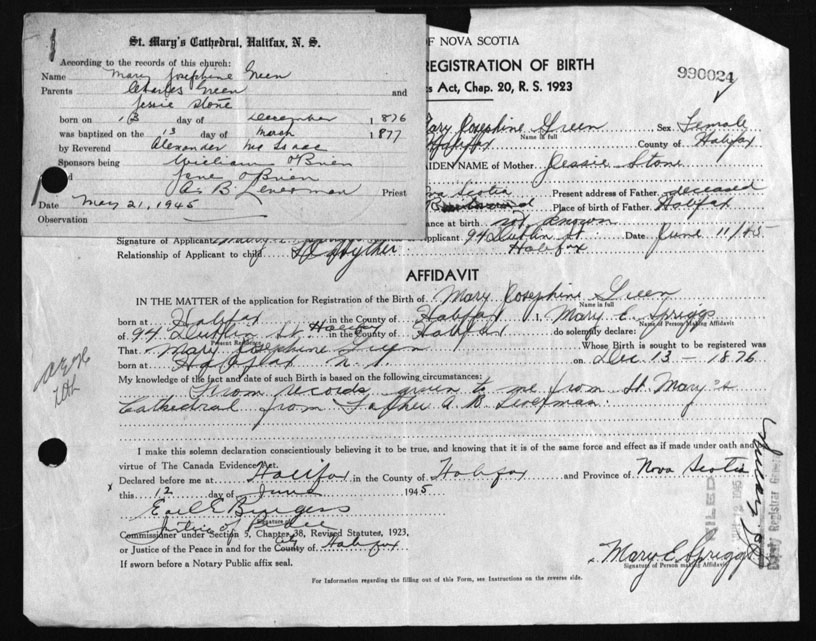 St. Mary's Cathedral, Halifax, N. S.
According to the records of this church:
Name Mary Josephine Green
Parents Charles Green and
Jessie Stone
born on 13 day of December 1876
was baptized on the 13 day of March 1877
by Reverend Alexander Mc Isaac
Sponsors being William O'Brien
Jane O'Brien
Priest
Date May 21, 1945
Observation
OF NOVA SCOTIA
REGISTRATION OF BIRTH
Act, Chap. 20, R. S. 1923
990024
Mary Josephine Green Sex Female
Name in full
Halifax County of Halifax
MAIDEN NAME of Mother Jessie Stone
Nova Scotia Present address of Father deceased
Place of birth of Father Halifax
at birth not known
Signature of Applicant Applicant 94 Dublin St. Date June 11/45
Halifax
Relationship of Applicant to child
AFFIDAVIT
IN THE MATTER of the application for Registration of the Birth of Mary Josephine Green
Name in full
born at Halifax in the County of Halifax I, Mary E. Spriggs
Name of Person Making Affidavit
of 94 Dublin St. Halifax in the County of Halifax do solemnly declare:
Present Residence
That Mary Josephine Green Whose Birth is sought to be registered was
born at Halifax N. S. on Dec 13 - 1876
My knowledge of the fact and date of such Birth is based on the following circumstances:
From records given to me from St. Mary's
Cathedral from Father A. B.
I make this solemn declaration conscientiously believing it to be true, and knowing that it is of the same force and effect as if made under oath and by
virtue of The Canada Evidence Act.
Declared before me at Halifax in the County of Halifax and Province of Nova Scotia
this 12 day of June 1945
Earl E Burgess
Signature
Justice of Peace
Commissioner under Section 5, Chapter 38, Revised Statutes, 1923,
or Justice of the Peace in and for the County of Halifax
City
If sworn before a Notary Public affix seal.
Mary E. Spriggs
Signature of Person making Affidavit
For Information regarding the filling out of this Form, see Instructions on the reverse side.
Deputy Registrar General